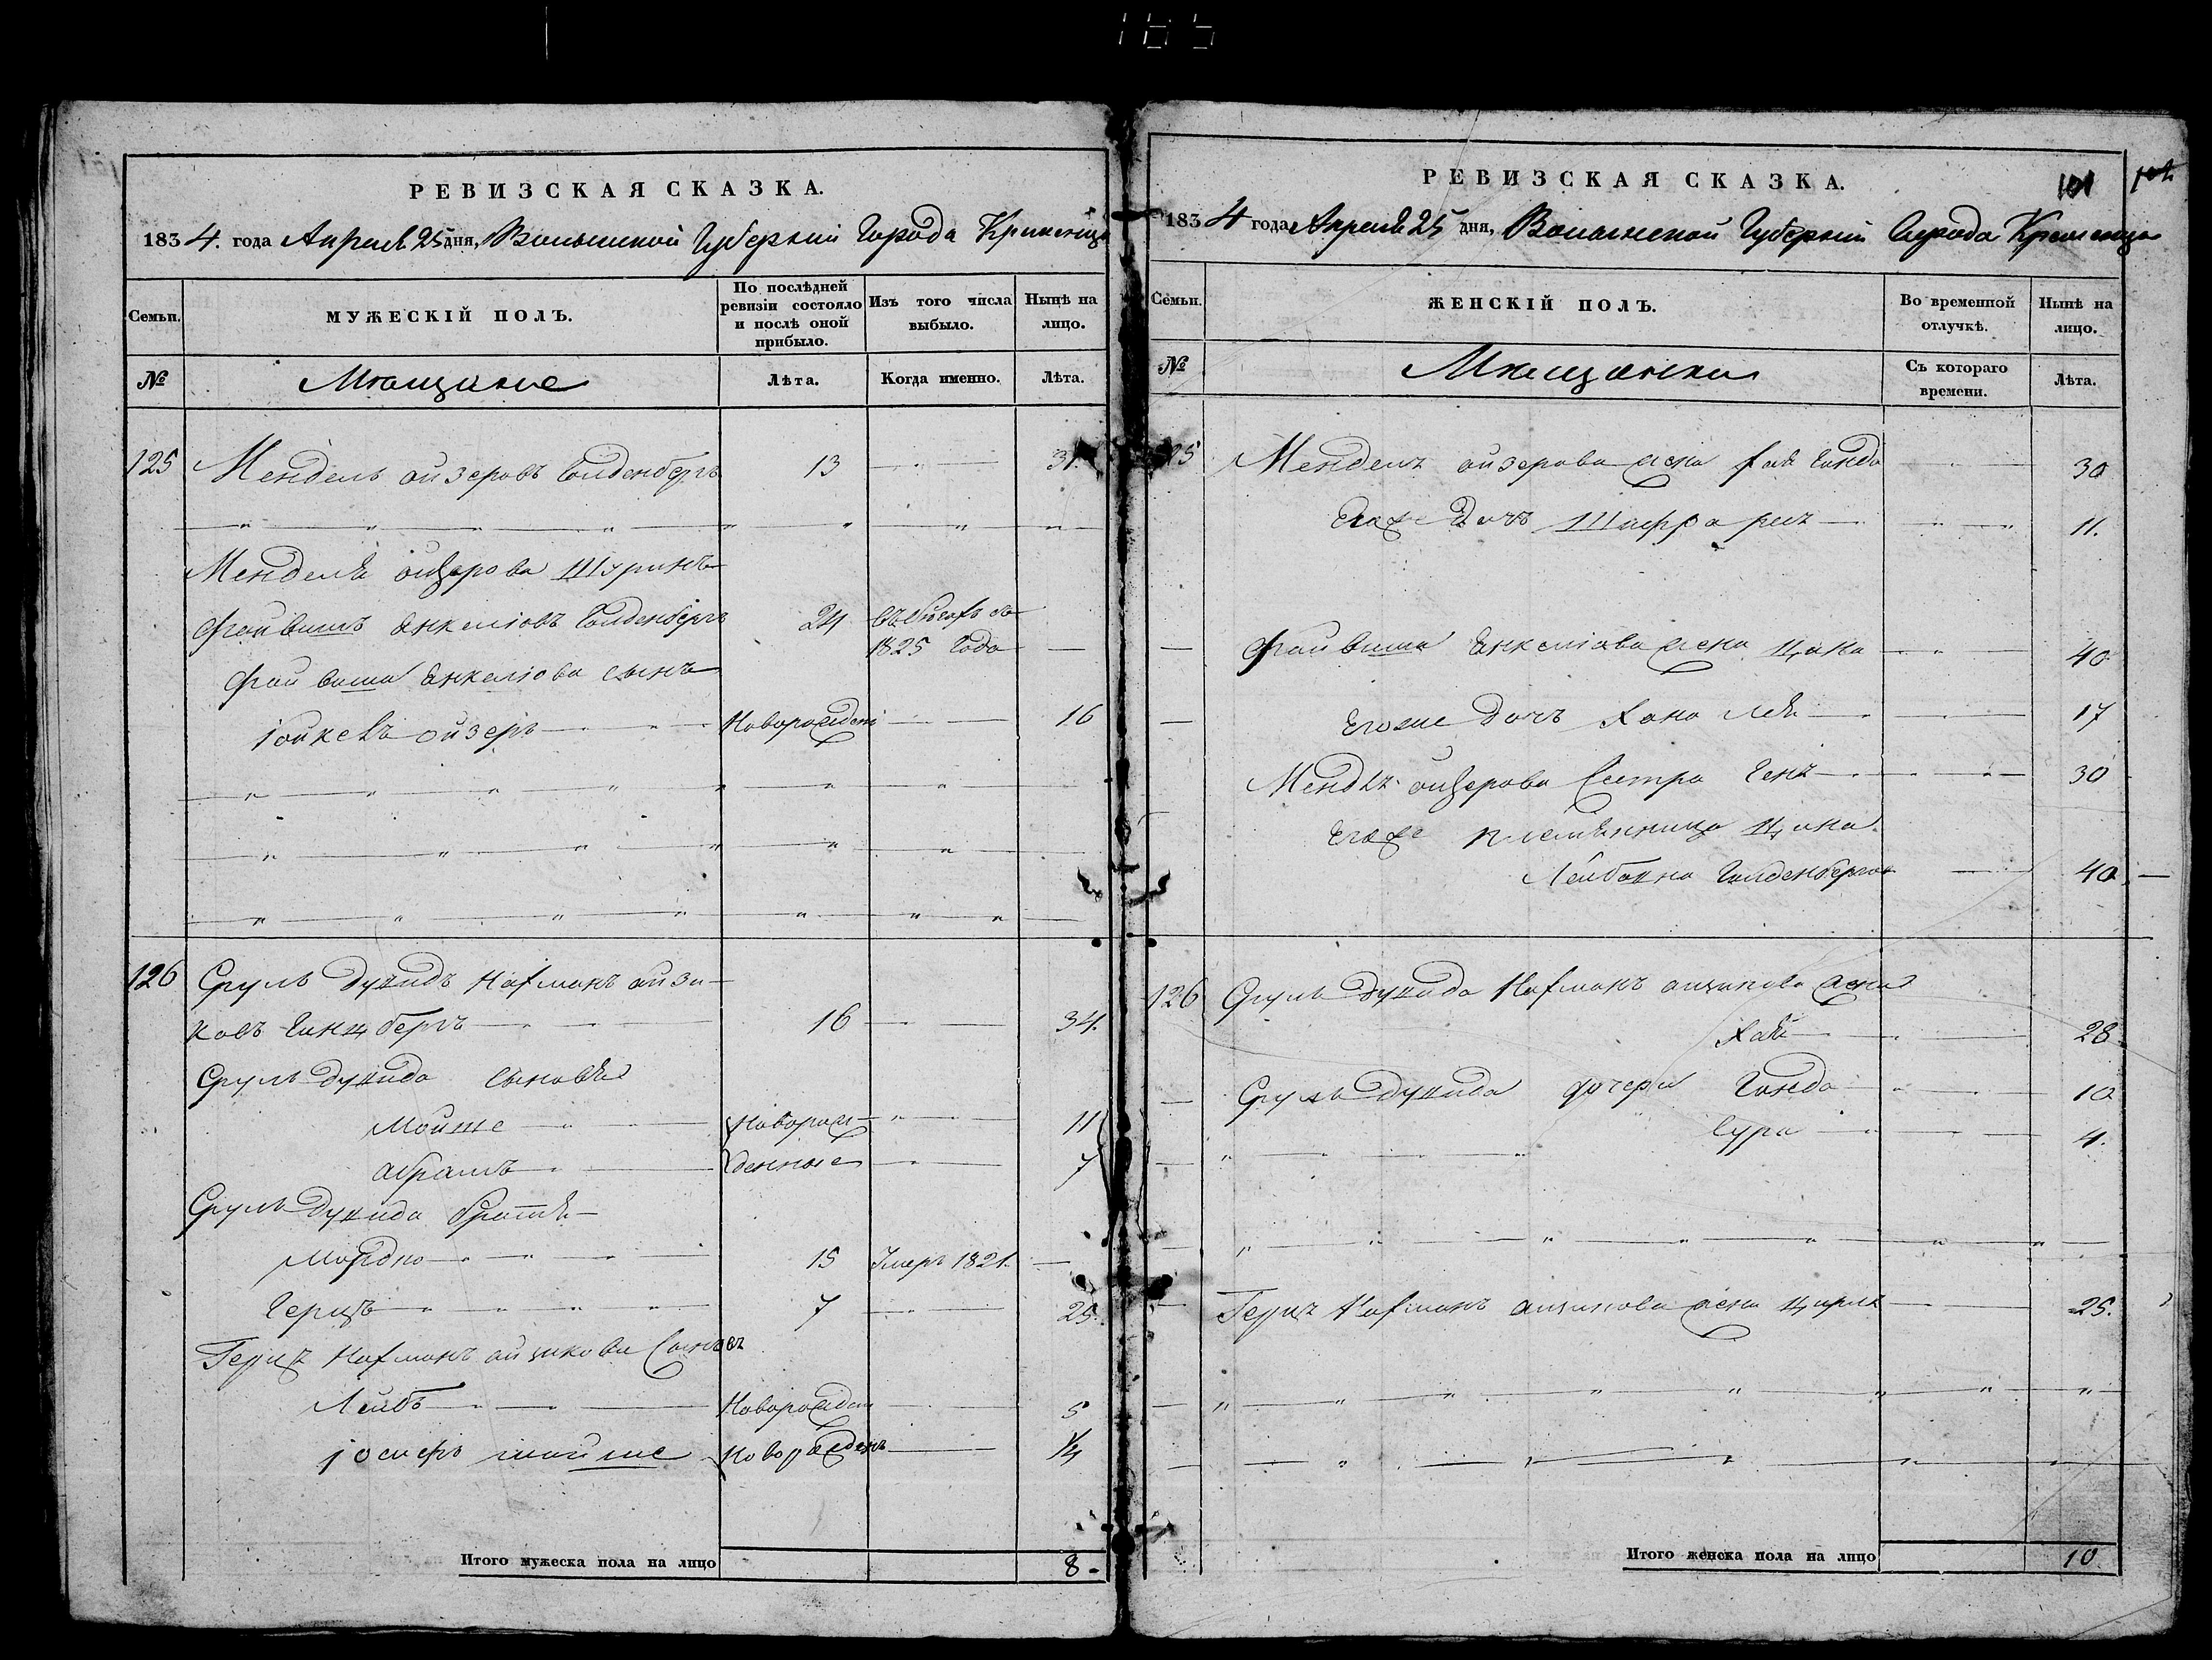 165
РЕВИЗСКАЯ СКАЗКА.
1834. года Апреля 25 дня, Волынской Губерніи Города Кременца
Семьи.
МУЖЕСКІЙ ПОЛЪ.
По послѣдней ревизіи состояло и послѣ оной прибыло.
Изъ того числа выбыло.
Нынѣ на лицо.
№
Мѣщане
Лѣта.
Когда именно.
Лѣта.
125 Мендель ойзеровъ Голденбергъ 13 31.
Менделя ойзерова Шуринъ
Файвишъ Енкеліовъ Голденбергъ 24 1825 Года
Файвиша Енкеліова сынъ
ойзеръ Новорожден 16
126 Сруль Дувидъ Нахманъ айзи-
ковъ Гинцбергъ 16 34.
Сруль Дувида сыновья
Мойше Новорож- 11
абрамъ денные 7
Сруль Дувида братья
Мордко 15 Умеръ 1821.
Герцъ 7 25.
Герцъ Нахманъ айзикова Сыновъ
Лейбъ Новорожден 5
Іосифъ мойше Новорожденъ 1/4
Итого мужеска пола на лицо 8.
РЕВИЗСКАЯ СКАЗКА.
101
1834 года Апреля 25 дня, Волынской Губерніи Города Кременца
Семьи.
ЖЕНСКІЙ ПОЛЪ.
Во временной отлучкѣ.
Нынѣ на лицо.
№
Мѣщанки
Съ котораго времени.
Лѣта.
125 Мендель ойзерова жена Хая Гинда 30
Егоже Дочь Шифра 11.
Файвиша Енкеліова жена Цина 40
Егоже Дочь Хана Лея 17
ойзерова Сестра Геня 30
Егоже племянница Цина
Лейбовна Голденбергова 40
126 Сруль Дувида Нахманъ айзикова жена
Хая 28
Сруль Дувида дочери Гинда 10
Сура 4.
Герцъ Нахманъ айзикова жена Цирля 25.
Итого женска пола на лицо 10.